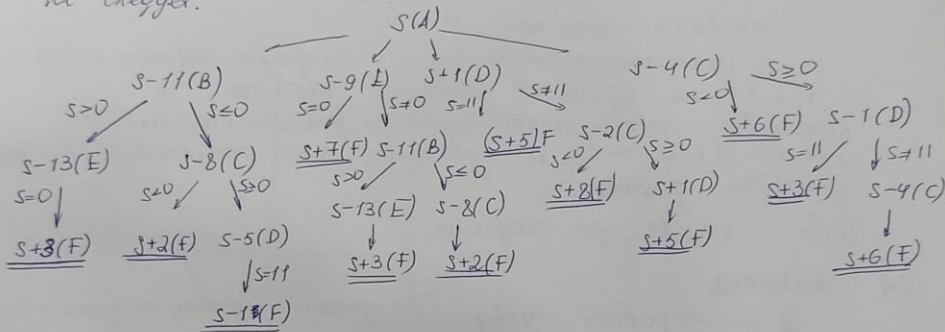 не следует.
S(A)
S-11(B) S-9(E) S+1(D) S-4(C) S≥0
S>0 S≤0 S=0 S≠0 S=11 S≠11 S<0
S-13(E) S-8(C) S+7(F) S-11(B) (S+5)F S-2(C) S+6(F) S-1(D)
S=0 S<0 S≥0 S>0 S≤0 S<0 S≥0 S=11 S≠11
S+3(F) S+2(F) S-5(D) S-13(E) S-8(C) S+8(F) S+1(D) S+3(F) S-4(C)
S=11 S+3(F) S+2(F) S+5(F) S+6(F)
S-1(F)